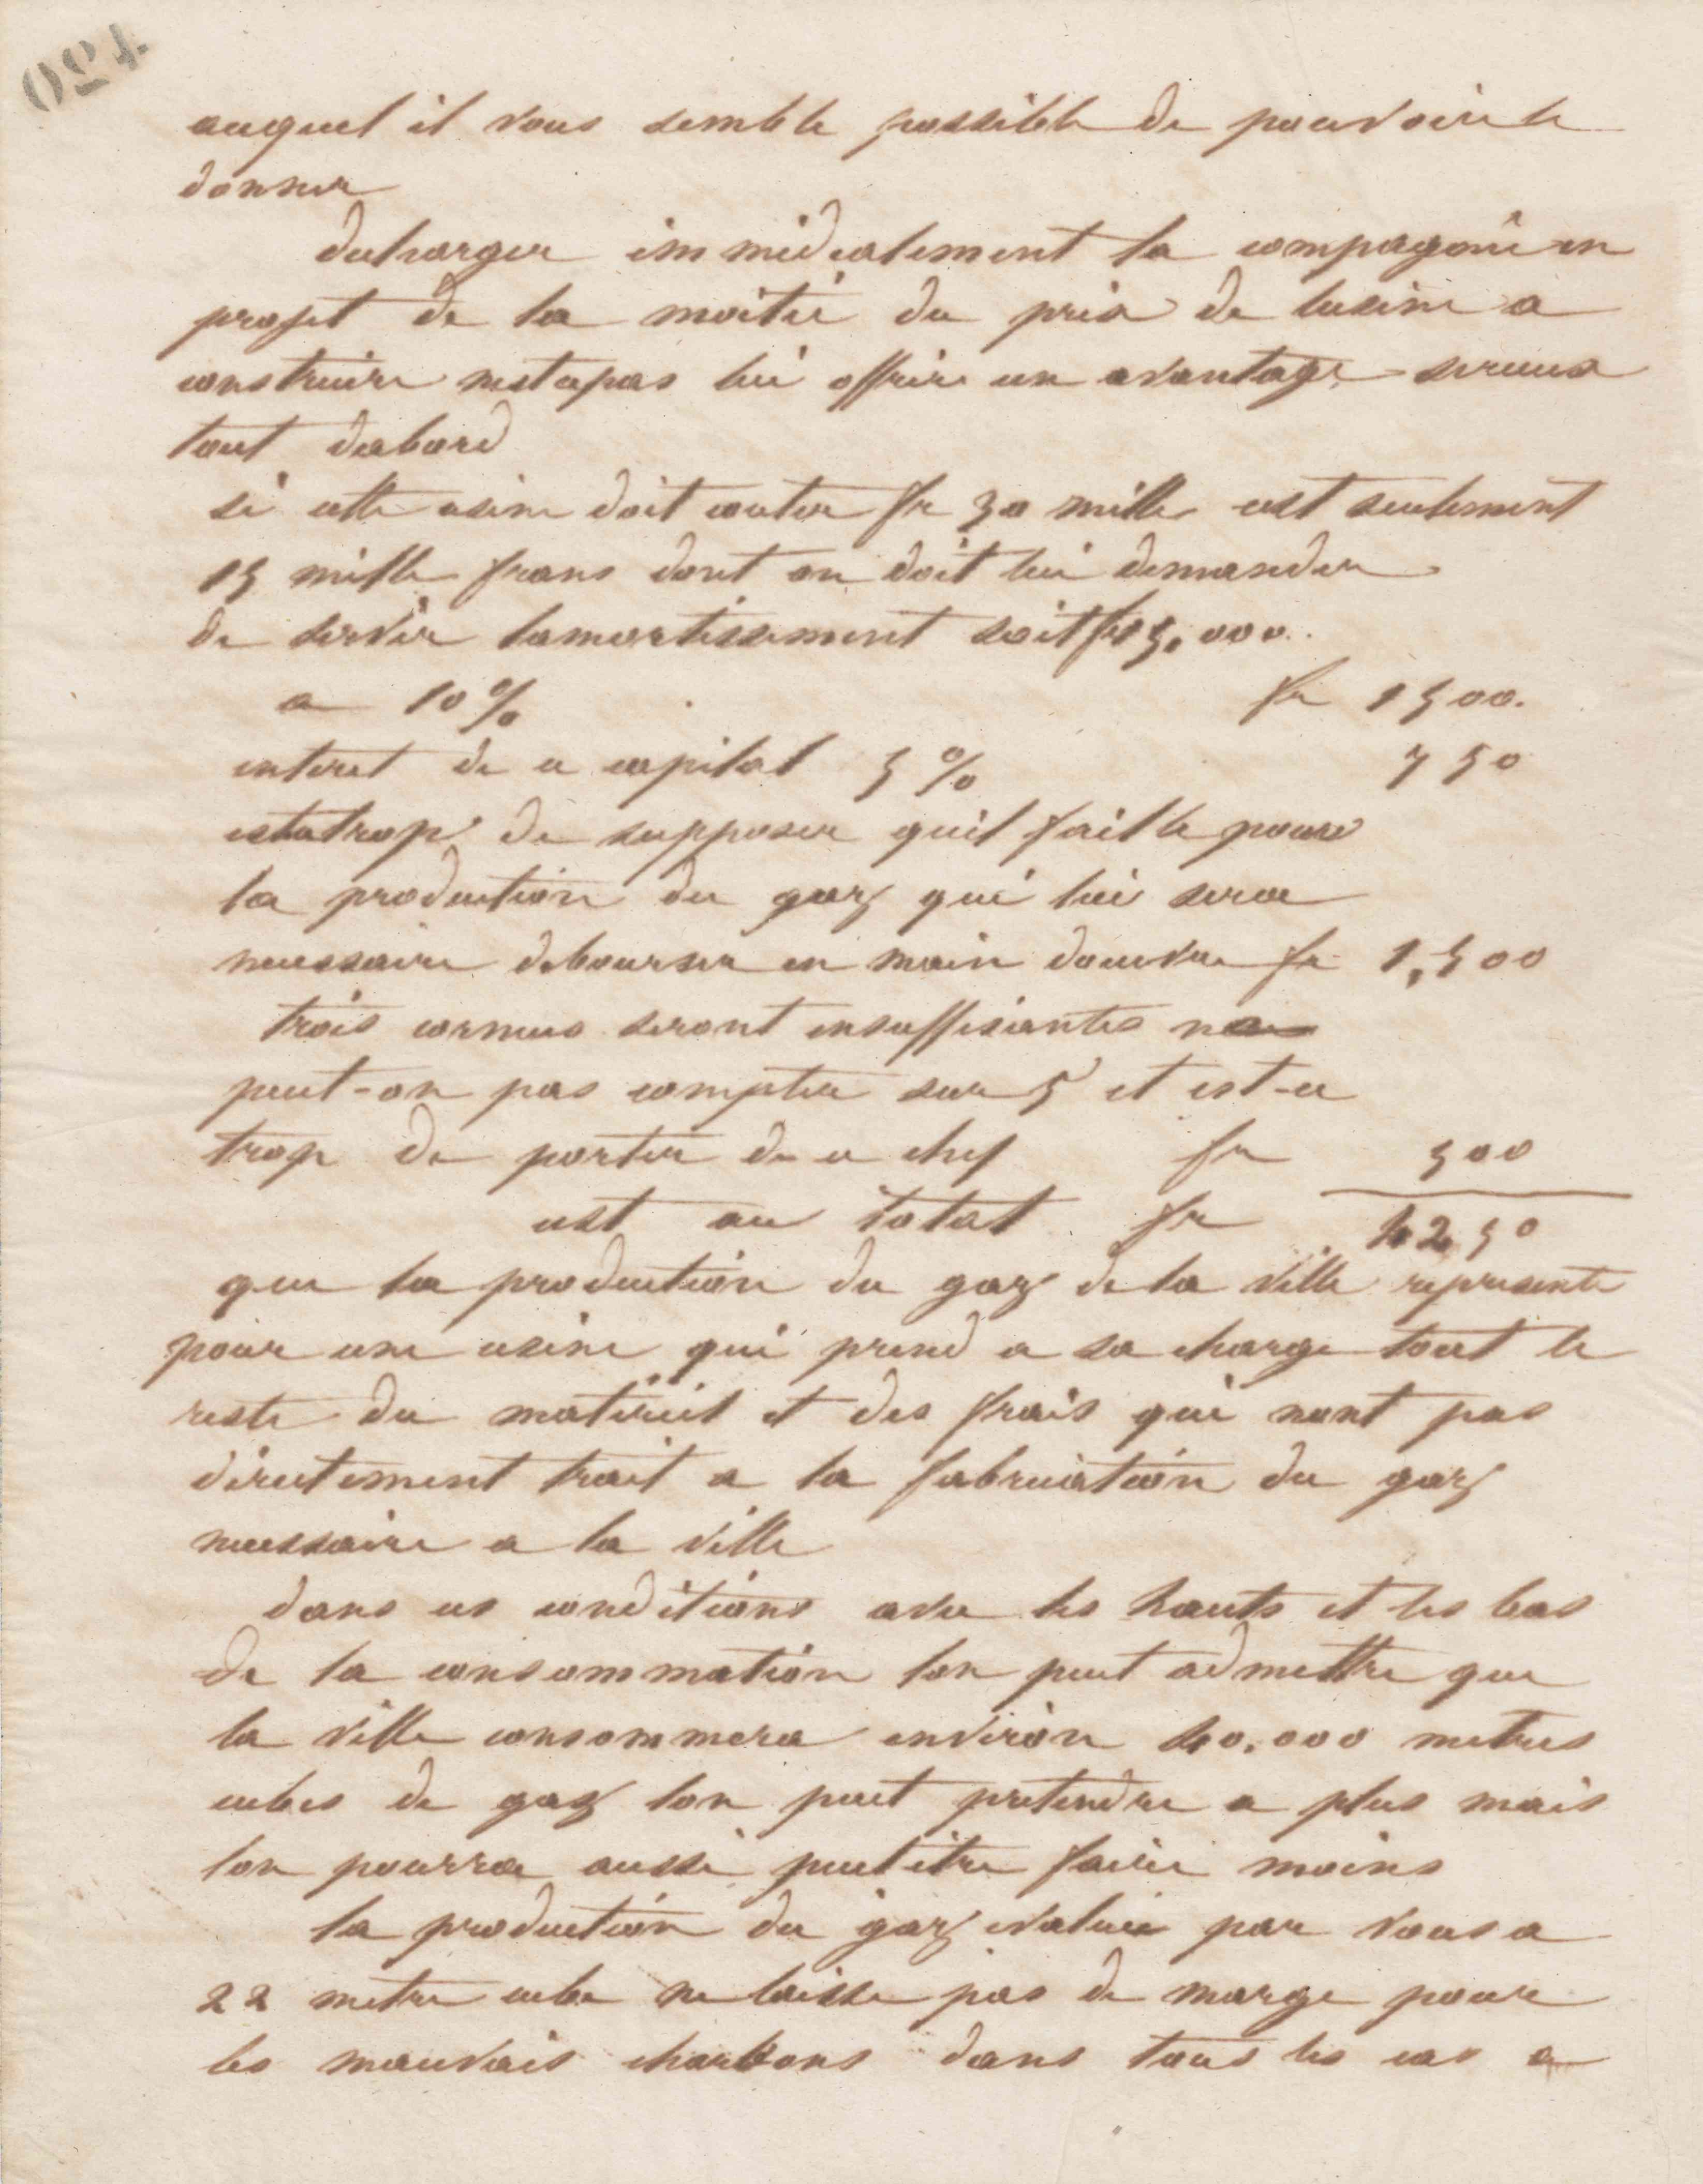 420
auquel il vous semble possible de pouvoir le
donner
decharger immediatement la compagnie en
projet de la moitié du prix de lusine a
construire nestapas lui offrir un avantage serieux
tout dabord
si cette usine doit couter fr 30 mille cest seulement
15 mille francs dont on doit lui demander
de servir lamortissement soit fr 15,000.
a 10% fr 1500.
interet de ce capital 5% 750
estcetrop de supposer quil faille pour
la production du gaz qui lui sera
necessaire debourser en main doeuvre fr 1,500
trois cornues seront insuffisantes ne
peut-on pas compter sur 5 et est-ce
trop de porter de ce chef fr 500
cest au total fr 4250
que la production du gaz de la ville represente
pour une usine qui prend a sa charge tout le
reste du materiel et des frais qui nont pas
directement trait a la fabrication du gaz
necessaire a la ville
dans ces conditions avec les hauts et les bas
de la consommation lon peut admettre que
la ville consommera environ 40.000 metres
cubes de gaz lon peut pretendre a plus mais
lon pourra aussi peutetre faire moins
la production du gaz evaluée par vous a
22 metre cube ne laisse pas de marge pour
les mauvais charbons dans tous les cas a